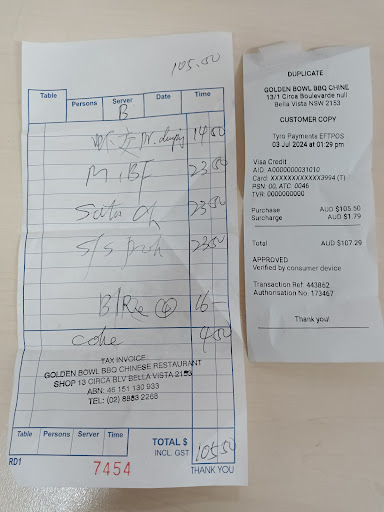 105.50
Table Persons Server Date Time
B
Dr. 14 50
M. BF 23 50
Satu 23 50
S/S Pork 23 50
B/Rie 4 16 -
coke 4 50
TAX INVOICE
GOLDEN BOWL BBQ CHINESE RESTAURANT
SHOP 13 CIRCA BLV BELLA VISTA 2153
ABN: 46 151 130 933
TEL: (02) 8883 2268
Table Persons Server Time
TOTAL $
INCL. GST
105 50
RD1
7454
THANK YOU
DUPLICATE
GOLDEN BOWL BBQ CHINE
13/1 Circa Boulevarde null
Bella Vista NSW 2153
CUSTOMER COPY
Tyro Payments EFTPOS
03 Jul 2024 at 01:29 pm
Visa Credit
AID: A0000000031010
Card: XXXXXXXXXXXX3994 (T)
PSN: 00, ATC: 0046
TVR: 0000000000
Purchase AUD $105.50
Surcharge AUD $1.79
Total AUD $107.29
APPROVED
Verified by consumer device
Transaction Ref: 443862
Authorisation No: 173467
Thank you!